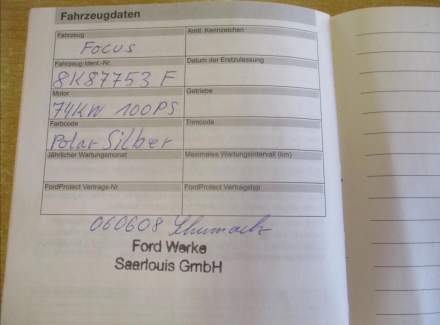 Fahrzeugdaten
Fahrzeug
Amtl. Kennzeichen
Focus
Fahrzeug-Ident.-Nr.
Datum der Erstzulassung
8K87753 F
Motor
Getriebe
74KW 100PS
Farbcode
Trimcode
Polar Silber
Jährlicher Wartungsmonat
Maximales Wartungsintervall (km)
FordProtect Vertrags-Nr.
FordProtect Vertragstyp
060608
Ford Werke
Saarlouis GmbH